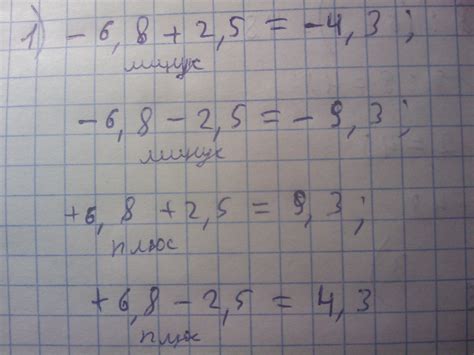 1) -6,8+2,5=-4,3;
минус
-6,8-2,5=-9,3;
минус
+6,8+2,5=9,3;
плюс
+6,8-2,5=4,3
плюс